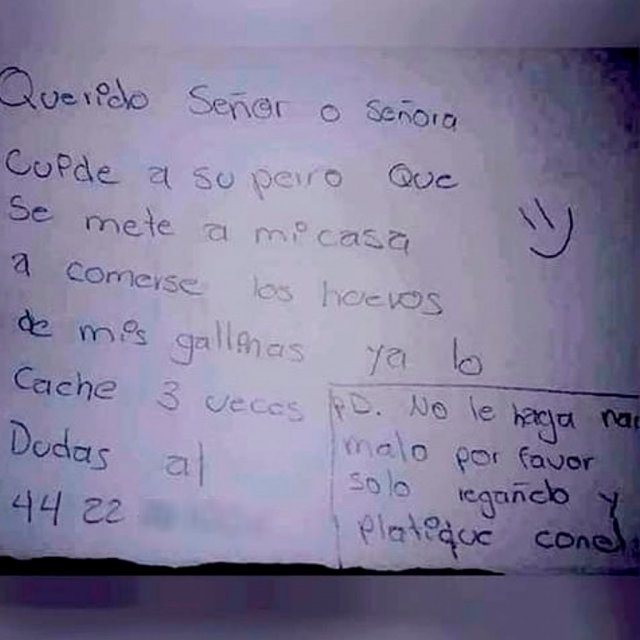 Querido Señor o señora
Cuide a su perro Que
se mete a mi casa
a comerse los huevos
de mis gallinas ya lo
Cache 3 veces
Dudas al
44 22
PD. No le haga na
malo por favor
solo regañelo y
platique con el